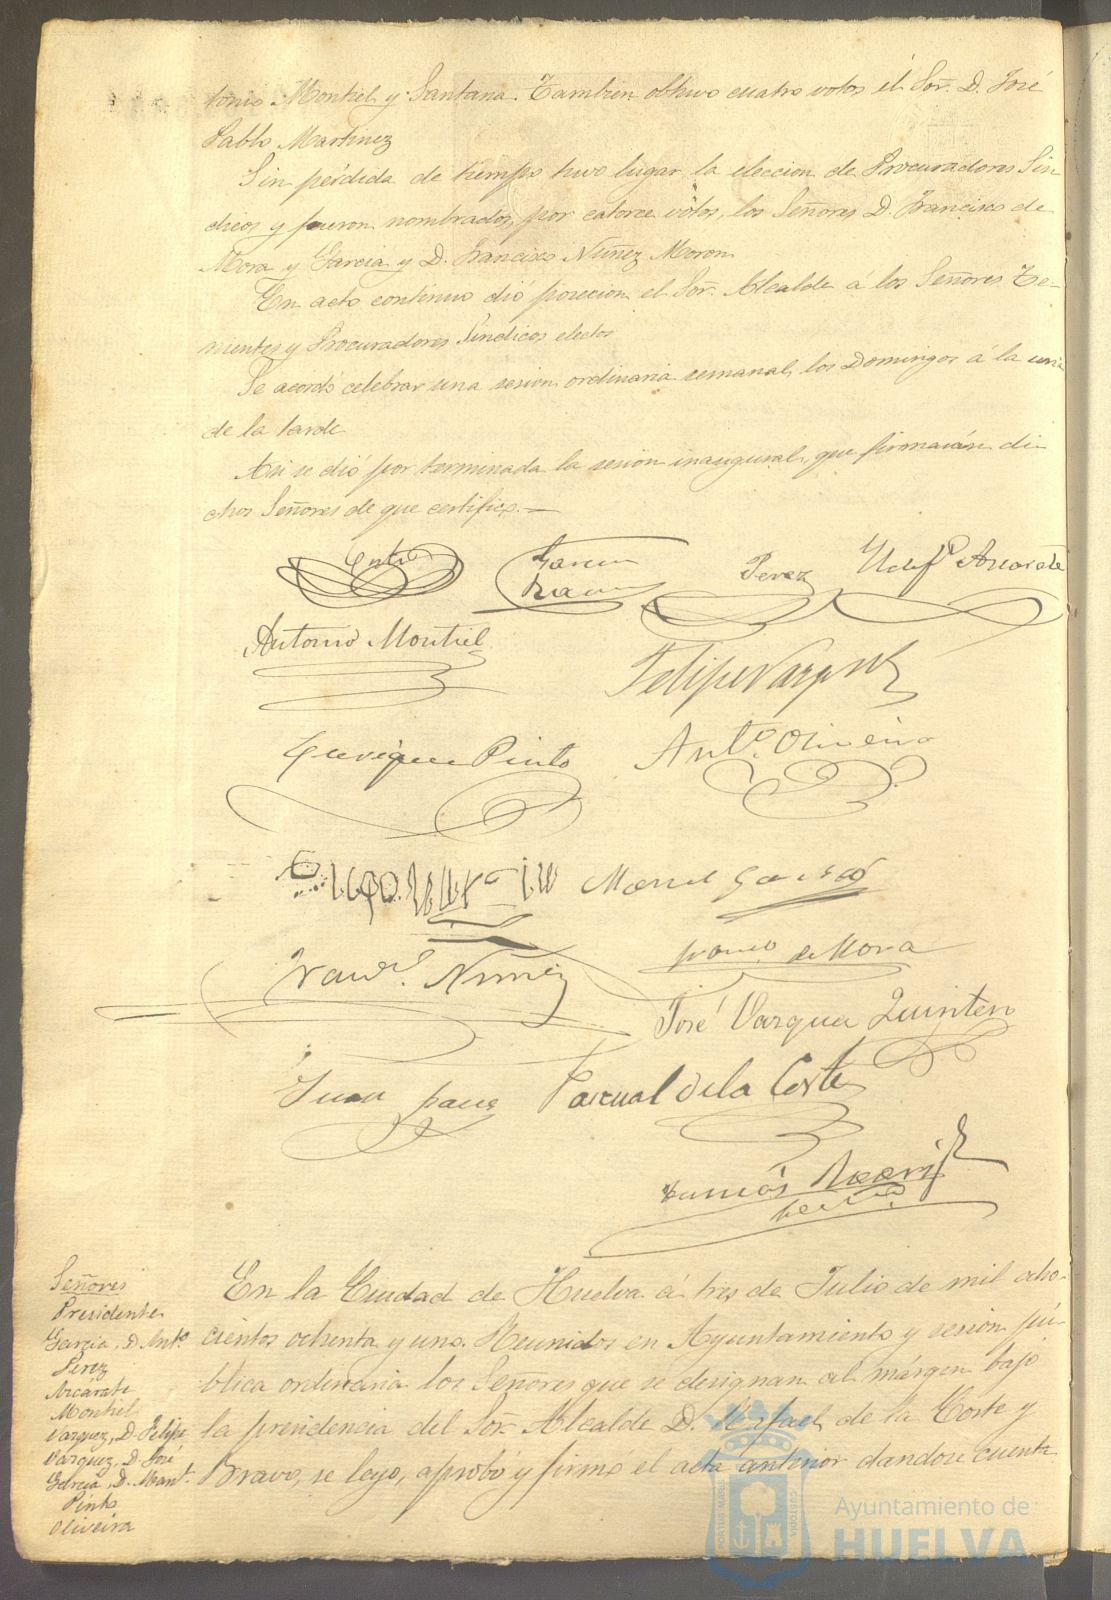 tonio Montiel y Santana. Tambien obtuvo cuatro votos el Sor. D. José
Pablo Martinez
Sin pérdida de tiempo tuvo lugar la eleccion de Procuradores Sin
dicos y fueron nombrados, por catorce votos, los Señores D. Francisco de
Mora y Garcia y D. Francisco Nuñez Moron.
En acto continuo dió posecion el Sor. Alcalde á los Señores Te-
nientes y Procuradores Sindicos electos
Se acordó celebrar una sesion ordinaria semanal, los Domingos á la una
de la tarde
Asi se dió por terminada la sesion inaugural, que firmarán di
chos Señores de que certifico.—
Corte Garcia Perez Ildefº Azcarate
Ramos
Antonio Montiel
Felipe Vazquez
Enrique Pinto Antº. Oliveira
Manuel Garcia
Francº. Nuñez Franco de Mora
José Vazquez Quintero
Juan Pascual de la Corte
Tomás
Señores
Presidente
Garcia, D. Antº.
Perez
Azcárate
Montiel
Vazquez, D. Felipe
Vázquez, D. José
Garcia, D. Manl.
Pinto
Oliveira
En la Ciudad de Huelva á tres de Julio de mil ocho-
cientos ochenta y uno. Reunidos en Ayuntamiento y sesion pú-
blica ordinaria los Señores que se designan al márgen bajo
la presidencia del Sor. Alcalde D. Rafael de la Corte y
Bravo, se leyó, aprobó y firmó el acta anterior dandose cuenta
Ayuntamiento de
HUELVA